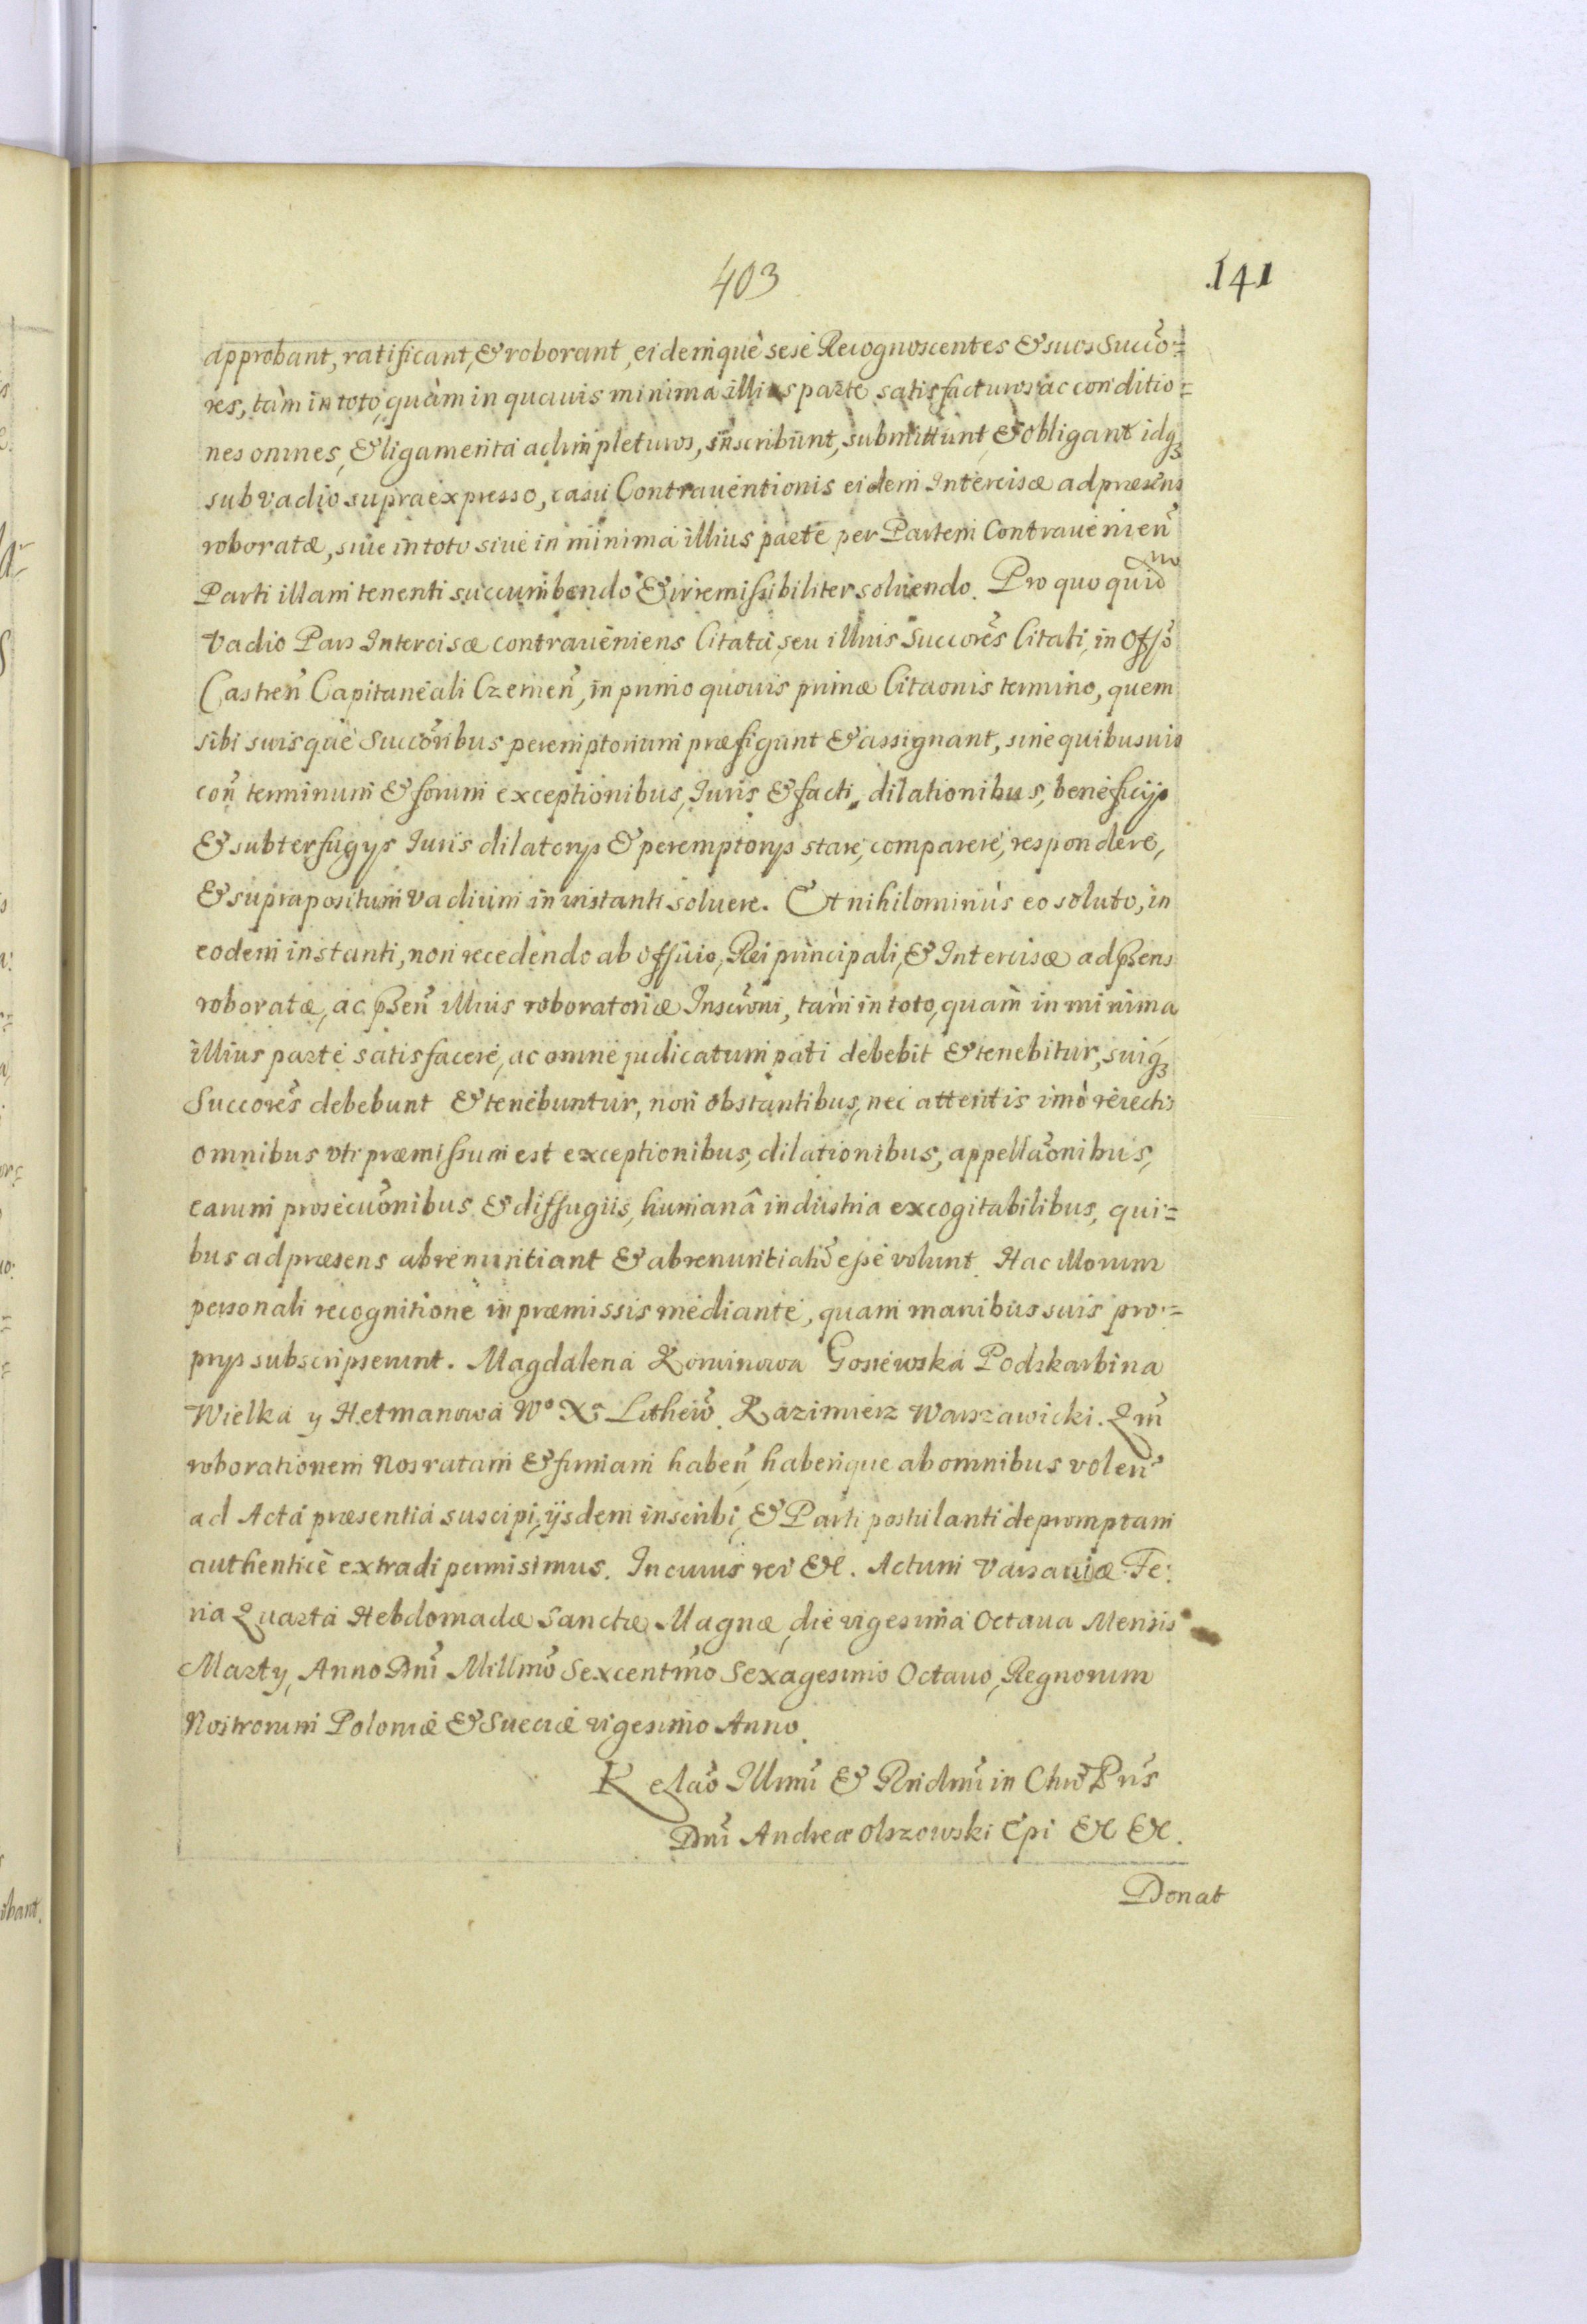 403
141
approbant, ratificant, & roborant, eidemque sese Recognoscentes & suos Succo=
res, tàm in toto, quàm in quauis minima illius parte satisfacturos ac conditio=
nes omnes, & ligamenta adimpleturos, inscribunt, submittunt & obligant idq3
sub vadio supra expresso, casu Contrauentionis eidem Intercisæ ad præsens
roboratæ, siue in toto siue in minima illius parte per Partem Contrauenien
Parti illam tenenti succumbendo & irremissibiliter soluendo. Pro quo quid
Vadio Pars Intercisæ contraueniens Citata, seu illius Succores Citati, in Offo
Castren Capitaneali Czernen, in primo quouis primæ Citaonis termino, quem
sibi suisque Succoribus peremptorium præfigunt & assignant, sine quibusuis
con terminum & forum exceptionibus, Iuris & facti, dilationibus, beneficijs
& subterfugys Iuris dilatorys & peremptorys stare, comparere, respondere,
& suprapositum Vadium in instanti soluere. Et nihilominùs eo soluto, in
eodem instanti, non recedendo ab officio, Rei principali, & Intercisæ ad p3ens
roboratæ, ac p3en illius roboratoriæ Inscroni, tàm in toto, quam in minima
illius parte satisfacere, ac omne judicatum pati debebit & tenebitur, suiq3
Succores debebunt & tenebuntur, non obstantibus, nec attentis imò reiectis
omnibus vti præmissum est exceptionibus, dilationibus, appellaonibus,
earum prosecuonibus & diffugiis, humanâ industria excogitabilibus, qui=
bus ad præsens abrenuntiant & abrenuntiatu esse volunt. Hac illorum
personali recognitione in præmissis mediante, quam manibus suis pro=
prys subscripserunt. Magdalena Korwinowa Gosiewska Podskarbina
Wielka y Hetmanowa Wo Xa Lithew. Kazimierz Warszawicki. Qm
roborationem Nos ratam & firmam haben, haberique ab omnibus volen
ad Acta præsentia suscipi, ijsdem inscribi, & Parti postulanti depromptam
authenticè extradi permisimus. In cuius rei &c. Actum Varsauiæ Fe:
ria Quarta Hebdomadæ Sanctæ Magnæ, die vigesima Octaua Mensis
Marty, Anno Dni Millmo Sexcentmo Sexagesimo Octauo, Regnorum
Nostrorum Poloniæ & Sueciæ vigesimo Anno.
Relao Illmi & Rndmi in Chro Pris
Dni Andreæ Olszowski Epi &c &c.
Donat